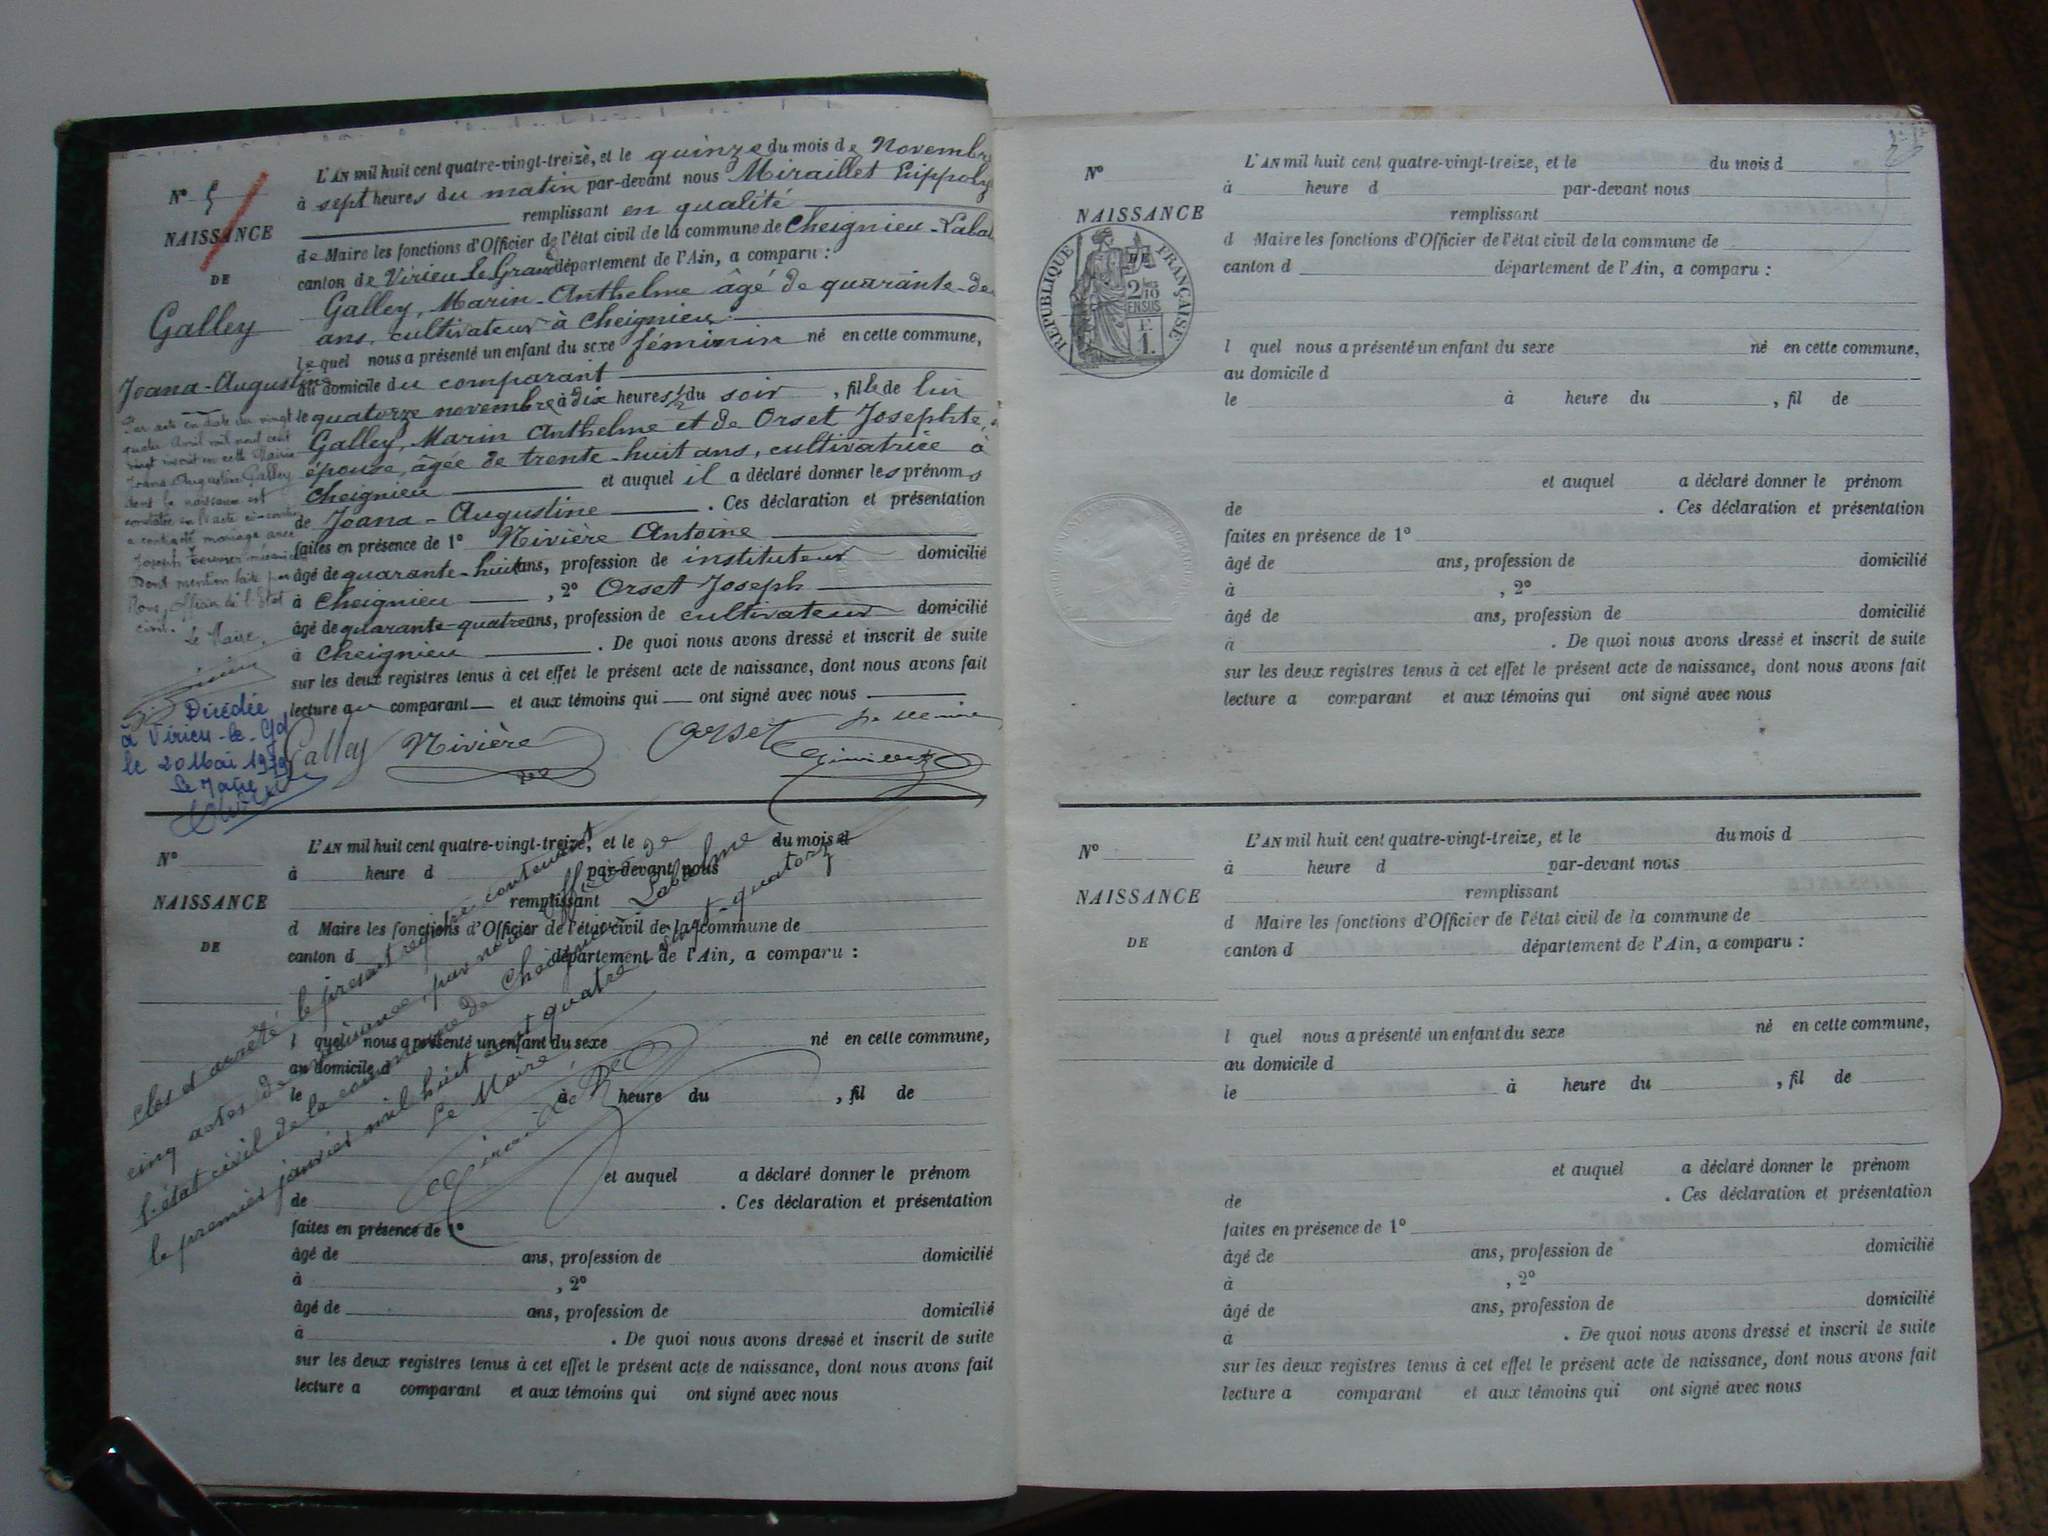 N° 5
NAISSANCE
DE
Galley
Joana-Augustine
L'AN mil huit cent quatre-vingt-treize, et le quinze du mois de Novembre
à sept heures du matin par-devant nous Miraillet
remplissant en qualité
de Maire les fonctions d'Officier de l'état civil de la commune de Cheignieu-Labal
canton de Virieu le Grand département de l'Ain, a comparu :
Galley, Marin-Anthelme âgé de quarante-de
ans, cultivateur à Cheignieu
lequel nous a présenté un enfant du sexe féminin né en cette commune,
au domicile du comparant
le quatorze novembre à dix heures 1/2 du soir, fille de lui
Galley, Marin Anthelme et de Orset Josephte,
épouse, âgée de trente-huit ans, cultivatrice à
Cheignieu et auquel il a déclaré donner les prénoms
de Joana-Augustine. Ces déclaration et présentation
faites en présence de 1° Rivière Antoine
âgé de quarante-huit ans, profession de instituteur domicilié
à Cheignieu, 2° Orset Joseph
âgé de quarante-quatre ans, profession de cultivateur domicilié
à Cheignieu. De quoi nous avons dressé et inscrit de suite
sur les deux registres tenus à cet effet le présent acte de naissance, dont nous avons fait
lecture au comparant et aux témoins qui ont signé avec nous
Galley Rivière Orset Le Maire
Par acte en date du vingt
quatre Avril mil neuf cent
vingt inscrit en cette Mairie
Joana-Augustine Galley
dont la naissance est
constatée en l'acte ci-contre
a contracté mariage avec
Joseph
Dont mention faite par
Nous, Officier de l'Etat
civil. Le Maire,
Décédée
à Virieu-le-Gd
le 20 Mai 1979
Le Maire
N°
NAISSANCE
DE
L'AN mil huit cent quatre-vingt-treize, et le du mois d
à heure d par-devant nous
remplissant
d Maire les fonctions d'Officier de l'état civil de la commune de
canton d département de l'Ain, a comparu :
l quel nous a présenté un enfant du sexe né en cette commune,
au domicile d
le à heure du , fil de
et auquel a déclaré donner le prénom
de . Ces déclaration et présentation
faites en présence de 1°
âgé de ans, profession de domicilié
à , 2°
âgé de ans, profession de domicilié
à . De quoi nous avons dressé et inscrit de suite
sur les deux registres tenus à cet effet le présent acte de naissance, dont nous avons fait
lecture a comparant et aux témoins qui ont signé avec nous
Clos et arrêté le présent registre contenant
cinq actes de naissance, par nous officier de
l'état civil de la commune de Cheignieu Labalme
le premier janvier mil huit cent quatre-vingt-quatorze
Le Maire
N°
NAISSANCE
DE
RÉPUBLIQUE FRANÇAISE
2/10
EN SUS
F.
1.
L'AN mil huit cent quatre-vingt-treize, et le du mois d
à heure d par-devant nous
remplissant
d Maire les fonctions d'Officier de l'état civil de la commune de
canton d département de l'Ain, a comparu :
l quel nous a présenté un enfant du sexe né en cette commune,
au domicile d
le à heure du , fil de
et auquel a déclaré donner le prénom
de . Ces déclaration et présentation
faites en présence de 1°
âgé de ans, profession de domicilié
à , 2°
âgé de ans, profession de domicilié
à . De quoi nous avons dressé et inscrit de suite
sur les deux registres tenus à cet effet le présent acte de naissance, dont nous avons fait
lecture a comparant et aux témoins qui ont signé avec nous
N°
NAISSANCE
DE
L'AN mil huit cent quatre-vingt-treize, et le du mois d
à heure d par-devant nous
remplissant
d Maire les fonctions d'Officier de l'état civil de la commune de
canton d département de l'Ain, a comparu :
l quel nous a présenté un enfant du sexe né en cette commune,
au domicile d
le à heure du , fil de
et auquel a déclaré donner le prénom
de . Ces déclaration et présentation
faites en présence de 1°
âgé de ans, profession de domicilié
à , 2°
âgé de ans, profession de domicilié
à . De quoi nous avons dressé et inscrit de suite
sur les deux registres tenus à cet effet le présent acte de naissance, dont nous avons fait
lecture a comparant et aux témoins qui ont signé avec nous